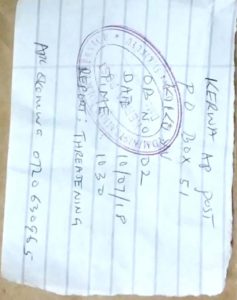 KERWA AP POST
P.O BOX 51
KIKUYU
OB NO 02
DATE 10/07/18
TIME 1030
REPORT: THREATENING
APC 0720630965